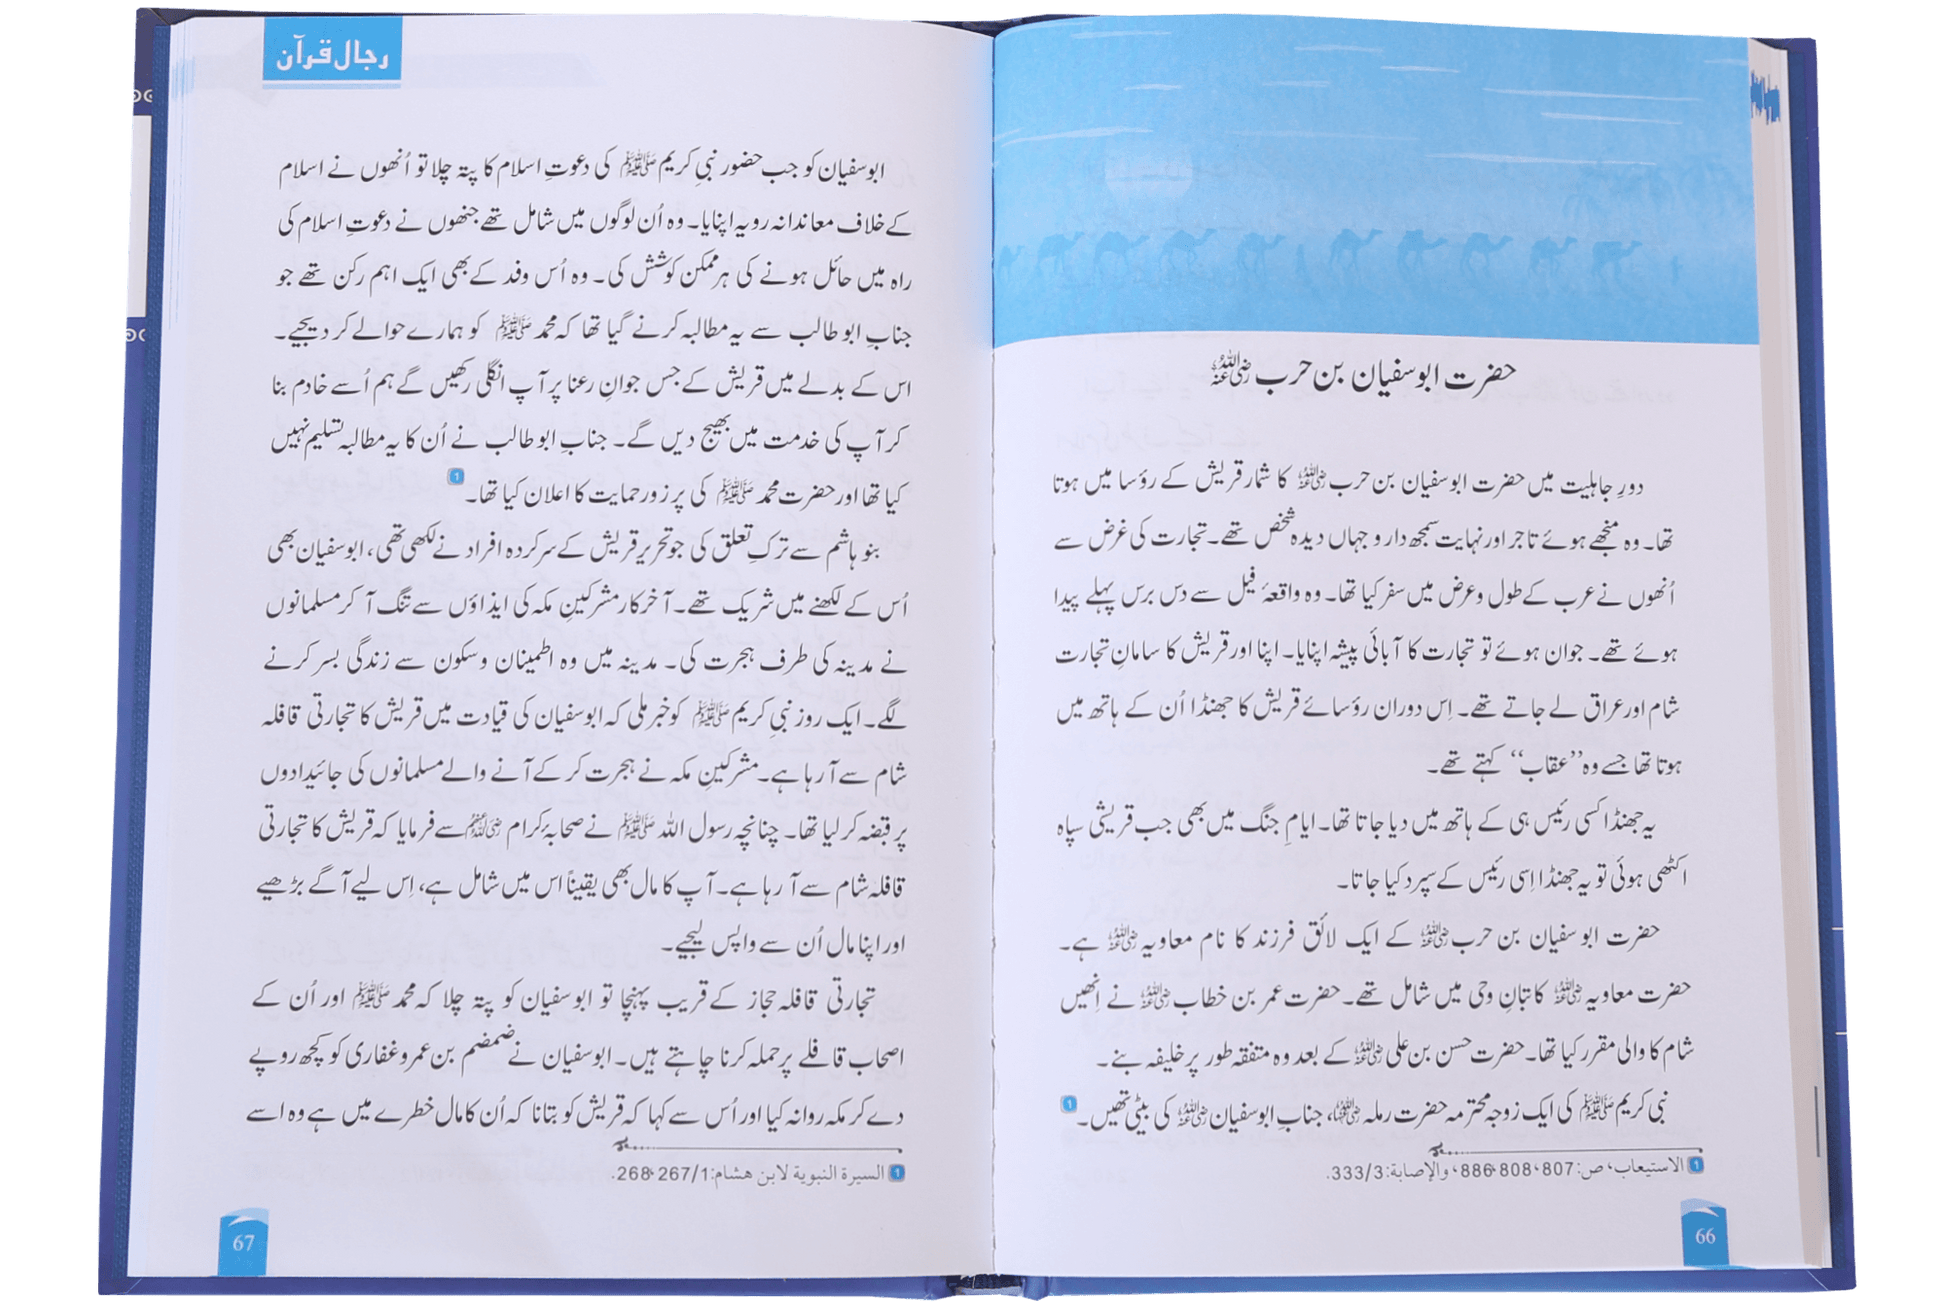 حضرت ابوسفیان بن حرب رضی اللہ عنہ
دورِ جاہلیت میں حضرت ابوسفیان بن حرب رضی اللہ عنہ کا شمار قریش کے رؤسا میں ہوتا
تھا۔ وہ منجھے ہوئے تاجر اور نہایت سمجھ دار و جہاں دیدہ شخص تھے۔ تجارت کی غرض سے
اُنھوں نے عرب کے طول و عرض میں سفر کیا تھا۔ وہ واقعۂ فیل سے دس برس پہلے پیدا
ہوئے تھے۔ جوان ہوئے تو تجارت کا آبائی پیشہ اپنایا۔ اپنا اور قریش کا سامانِ تجارت
شام اور عراق لے جاتے تھے۔ اِس دوران رؤسائے قریش کا جھنڈا اُن کے ہاتھ میں
ہوتا تھا جسے وہ ’’عقاب‘‘ کہتے تھے۔
یہ جھنڈا کسی رئیس ہی کے ہاتھ میں دیا جاتا تھا۔ ایامِ جنگ میں بھی جب قریشی سپاہ
اکٹھی ہوئی تو یہ جھنڈا اِسی رئیس کے سپرد کیا جاتا۔
حضرت ابو سفیان بن حرب رضی اللہ عنہ کے ایک لائق فرزند کا نام معاویہ رضی اللہ عنہ ہے۔
حضرت معاویہ رضی اللہ عنہ کاتبانِ وحی میں شامل تھے۔ حضرت عمر بن خطاب رضی اللہ عنہ نے اِنھیں
شام کا والی مقرر کیا تھا۔ حضرت حسن بن علی رضی اللہ عنہ کے بعد وہ متفقہ طور پر خلیفہ بنے۔
نبی کریم ﷺ کی ایک زوجہ محترمہ حضرت رملہ رضی اللہ عنہا، جناب ابوسفیان رضی اللہ عنہ کی بیٹی تھیں۔ 1
1 الاستیعاب، ص: 807، 808، 886، والإصابة: 333/3.
66
رجال قرآن
ابوسفیان کو جب حضور نبیِ کریم ﷺ کی دعوتِ اسلام کا پتہ چلا تو اُنھوں نے اسلام
کے خلاف معاندانہ رویہ اپنایا۔ وہ اُن لوگوں میں شامل تھے جنھوں نے دعوتِ اسلام کی
راہ میں حائل ہونے کی ہر ممکن کوشش کی۔ وہ اُس وفد کے بھی ایک اہم رکن تھے جو
جنابِ ابو طالب سے یہ مطالبہ کرنے گیا تھا کہ محمد ﷺ کو ہمارے حوالے کر دیجیے۔
اس کے بدلے میں قریش کے جس جوانِ رعنا پر آپ انگلی رکھیں گے ہم اُسے خادم بنا
کر آپ کی خدمت میں بھیج دیں گے۔ جنابِ ابو طالب نے اُن کا یہ مطالبہ تسلیم نہیں
کیا تھا اور حضرت محمد ﷺ کی پرزور حمایت کا اعلان کیا تھا۔ 1
بنو ہاشم سے ترکِ تعلق کی جو تحریر قریش کے سرکردہ افراد نے لکھی تھی، ابوسفیان بھی
اُس کے لکھنے میں شریک تھے۔ آخر کار مشرکینِ مکہ کی ایذاؤں سے تنگ آ کر مسلمانوں
نے مدینہ کی طرف ہجرت کی۔ مدینہ میں وہ اطمینان و سکون سے زندگی بسر کرنے
لگے۔ ایک روز نبیِ کریم ﷺ کو خبر ملی کہ ابوسفیان کی قیادت میں قریش کا تجارتی قافلہ
شام سے آ رہا ہے۔ مشرکینِ مکہ نے ہجرت کر کے آنے والے مسلمانوں کی جائیدادوں
پر قبضہ کر لیا تھا۔ چنانچہ رسول اللہ ﷺ نے صحابۂ کرام رضی اللہ عنہم سے فرمایا کہ قریش کا تجارتی
قافلہ شام سے آ رہا ہے۔ آپ کا مال بھی یقیناً اس میں شامل ہے، اِس لیے آگے بڑھیے
اور اپنا مال اُن سے واپس لیجیے۔
تجارتی قافلہ حجاز کے قریب پہنچا تو ابوسفیان کو پتہ چلا کہ محمد ﷺ اور اُن کے
اصحاب قافلے پر حملہ کرنا چاہتے ہیں۔ ابوسفیان نے ضمضم بن عمرو غفاری کو کچھ روپے
دے کر مکہ روانہ کیا اور اُس سے کہا کہ قریش کو بتانا کہ اُن کا مال خطرے میں ہے وہ اسے
1 السيرة النبوية لابن هشام: 267/1، 268.
67